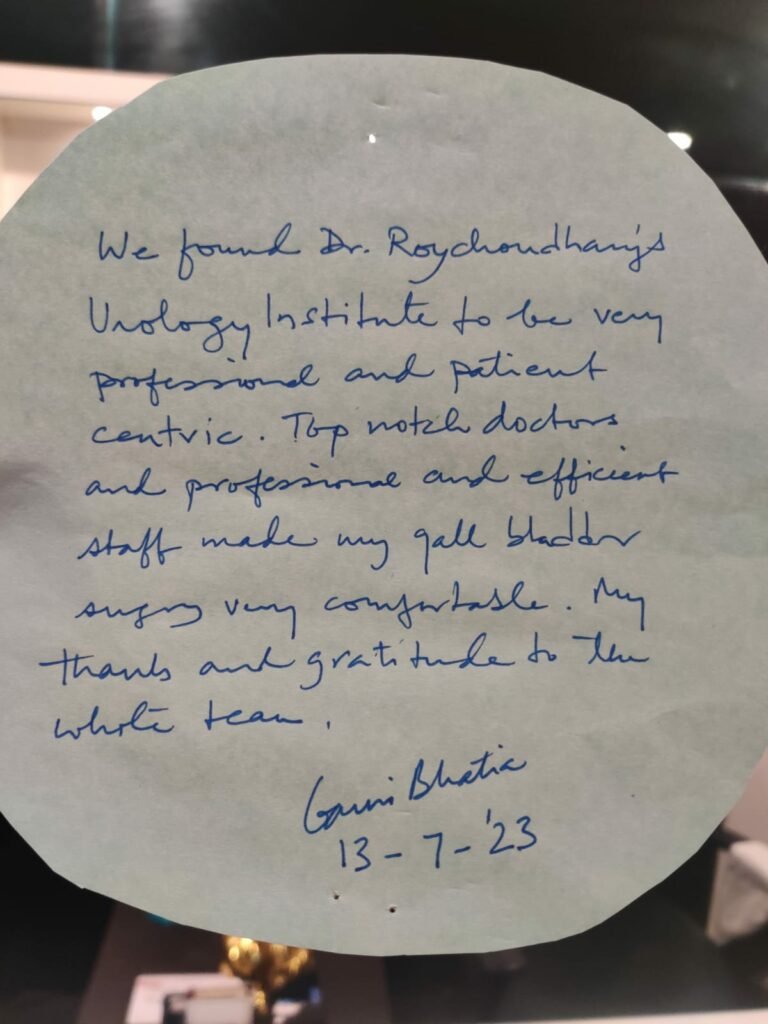 We found Dr. Roychoudhary's
Urology Institute to be very
professional and patient
centric. Top notch doctors
and professional and efficient
staff made my gall bladder
surgery very comfortable. My
thanks and gratitude to the
whole team.
Bhatia
13-7-'23